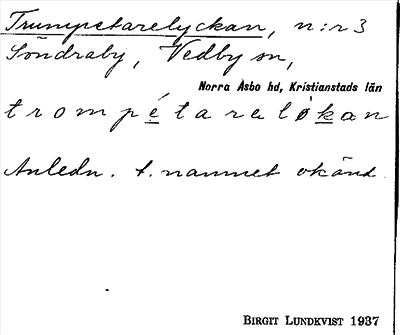 Trumpetarelyckan, n:r 3
Söndraby, Vedby sn,
Norra Åsbo hd, Kristianstads län
trompétareløkan
Anledn. t. namnet okänd.
BIRGIT LUNDKVIST 1937